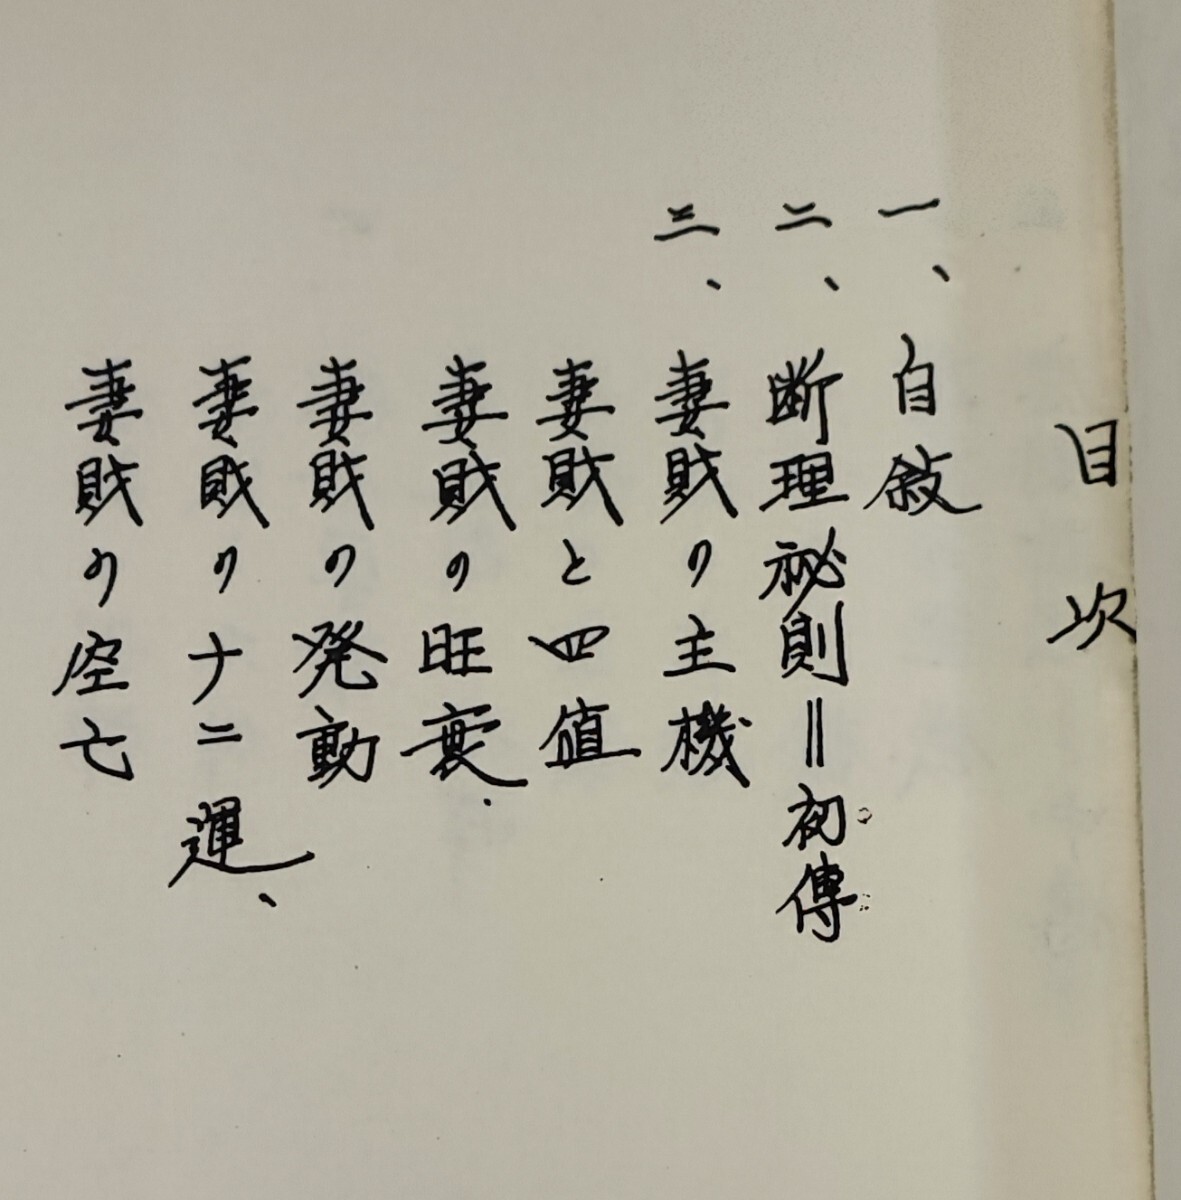 目次
一、自敍
二、断理秘則＝初傳
三、妻財の主機
妻財と四値
妻財の旺衰
妻財の発動
妻財の十二運、
妻財の空亡